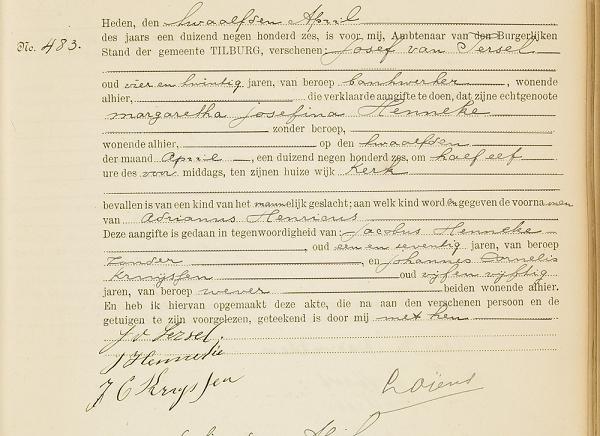 Heden, den twaalfden April
des jaars een duizend negen honderd zes, is voor mij, Ambtenaar van den Burgerlijken
No. 483.
Stand der gemeente TILBURG, verschenen: Josef van Iersel
oud vier en twintig jaren, van beroep bankwerker, wonende
alhier, die verklaarde aangifte te doen, dat zijne echtgenoote
margaretha Josefina Henneke
zonder beroep,
wonende alhier, op den twaalfden
der maand April, een duizend negen honderd zes, om half elf
ure des voor middags, ten zijnen huize wijk Kerk
bevallen is van een kind van het mannelijk geslacht; aan welk kind word en gegeven de voorna men
van Adrianus Henricus
Deze aangifte is gedaan in tegenwoordigheid van: Jacobus Henneke
, oud een en seventig jaren, van beroep
zonder, en Johannes Cornelis
Kruijssen oud vijf en vijftig
jaren, van beroep wever beiden wonende alhier.
En heb ik hiervan opgemaakt deze akte, die na aan den verschenen persoon en de
getuigen te zijn voorgelezen, geteekend is door mij met hen
J v Iersel.
J Henneke
J C Kruyssen